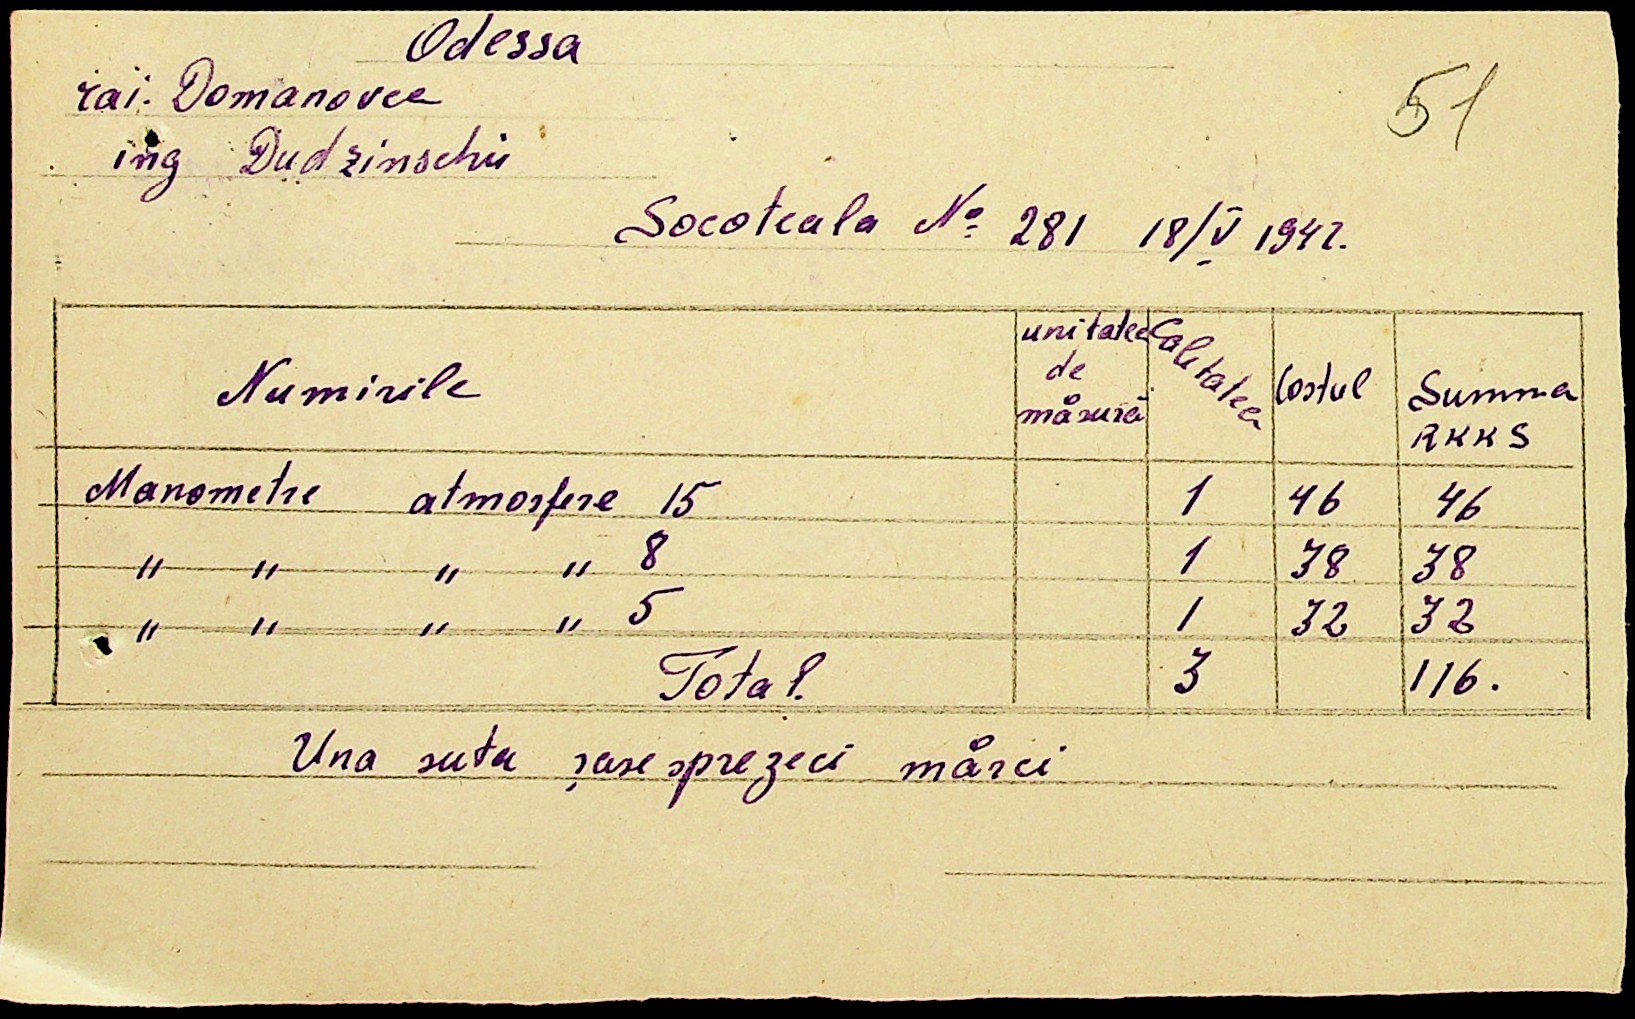 Odessa
51
rai. Domanovca
ing Dudzinschii
Socoteala № 281 18/V 1942.
Numirile unitatea de måsură Calitatea Costul Summa RKKS
Manometre atmosfere 15 1 46 46
" " " " 8 1 38 38
" " " " 5 1 32 32
Total. 3 116.
Una suta șasesprezeci mårci